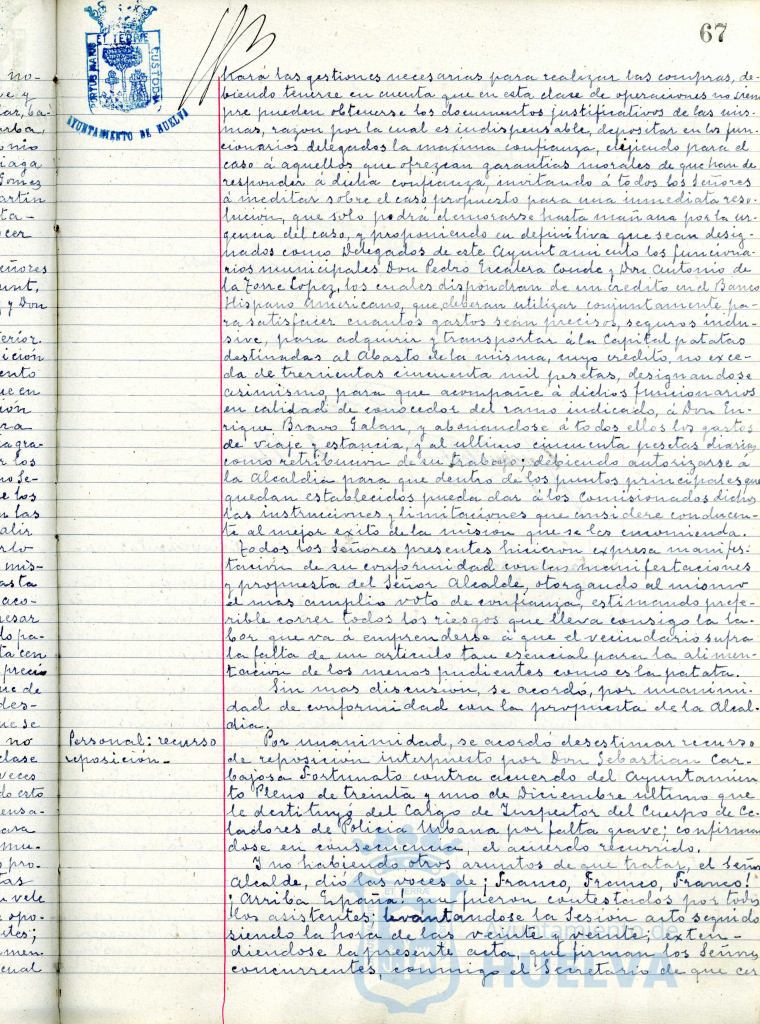 67
PORTUS MARIS ET TERRE CUSTODIA
AYUNTAMIENTO DE HUELVA
kará las gestiones necesarias para realizar las compras, de-
biendo tenerse en cuenta que en esta clase de operaciones no siem
pre pueden obtenerse los documentos justificativos de las mis-
mas, razon por la cual es indispensable, depositar en los fun-
cionarios delegados la maxima confianza, elijiendo para el
caso á aquellos que ofrezcan garantias morales de que han de
responder á dicha confianza, invitando á todos los Señores
á meditar sobre el caso propuesto para una inmediata reso-
lución, que solo podrá demorarse hasta mañana por la ur-
gencia del caso, y proponiendo en definitiva que sean desig-
nados como Delegados de este Ayuntamiento los funciona-
rios municipales Don Pedro Escalera Conde y Don Antonio de
la Torre Lopez, los cuales dispondran de un credito en el Banco
Hispano Americano, que deberan utilizar conjuntamente pa-
ra satisfacer cuantos gastos sean precisos, seguros inclu-
sive, para adquirir y transportar á la Capital patatas
destinadas al Abasto de la misma, cuyo credito, no exce-
da de trescientas cincuenta mil pesetas, designandose
asimismo, para que acompañe á dichos funcionarios
en calidad de conocedor del ramo indicado, á Don En-
rique Bravo Galan, y abonandose á todos ellos los gastos
de viaje y estancia, y al ultimo cincuenta pesetas diarias
como retribucion de su trabajo; debiendo autorizarse á
la Alcaldia para que dentro de los puntos principales que
quedan establecidos pueda dar á los Comisionados dichos
las instrucciones y limitaciones que considere conducen-
te al mejor exito de la mision que se les encomienda.
Todos los Señores presentes hicieron expresa manifes-
tacion de su conformidad con las manifestaciones
y propuesta del Señor Alcalde, otorgando al mismo
el mas amplio voto de confianza, estimando prefe-
rible correr todos los riesgos que lleva consigo la la-
bor que va á emprenderse á que el vecindario sufra
la falta de un articulo tan esencial para la alimen-
tacion de los menos pudientes como es la patata.
Sin mas discusion, se acordó, por unanimi-
dad de conformidad con la propuesta de la Alcal-
dia.
Personal: recurso
reposición.-
Por unanimidad, se acordó desestimar recurso
de reposicion interpuesto por Don Sebastian Car-
bajosa Fortunato contra acuerdo del Ayuntamien
to Pleno de treinta y uno de Diciembre ultimo que
le destituyó del Cargo de Inspector del Cuerpo de Ce-
ladores de Policia Urbana por falta grave; confirman
dose en consecuencia, el acuerdo recurrido.
Y no habiendo otros asuntos de que tratar, el Señor
Alcalde, dió las voces de ¡Franco, Franco, Franco!
¡Arriba España! que fueron contestados por todos
los asistentes; levantandose la Sesion acto seguido
siendo la hora de las veinte y veinte; exten-
diendose la presente acta, que firman los Señores
concurrentes, conmigo el Secretario de que cer
Ayuntamiento de
HUELVA